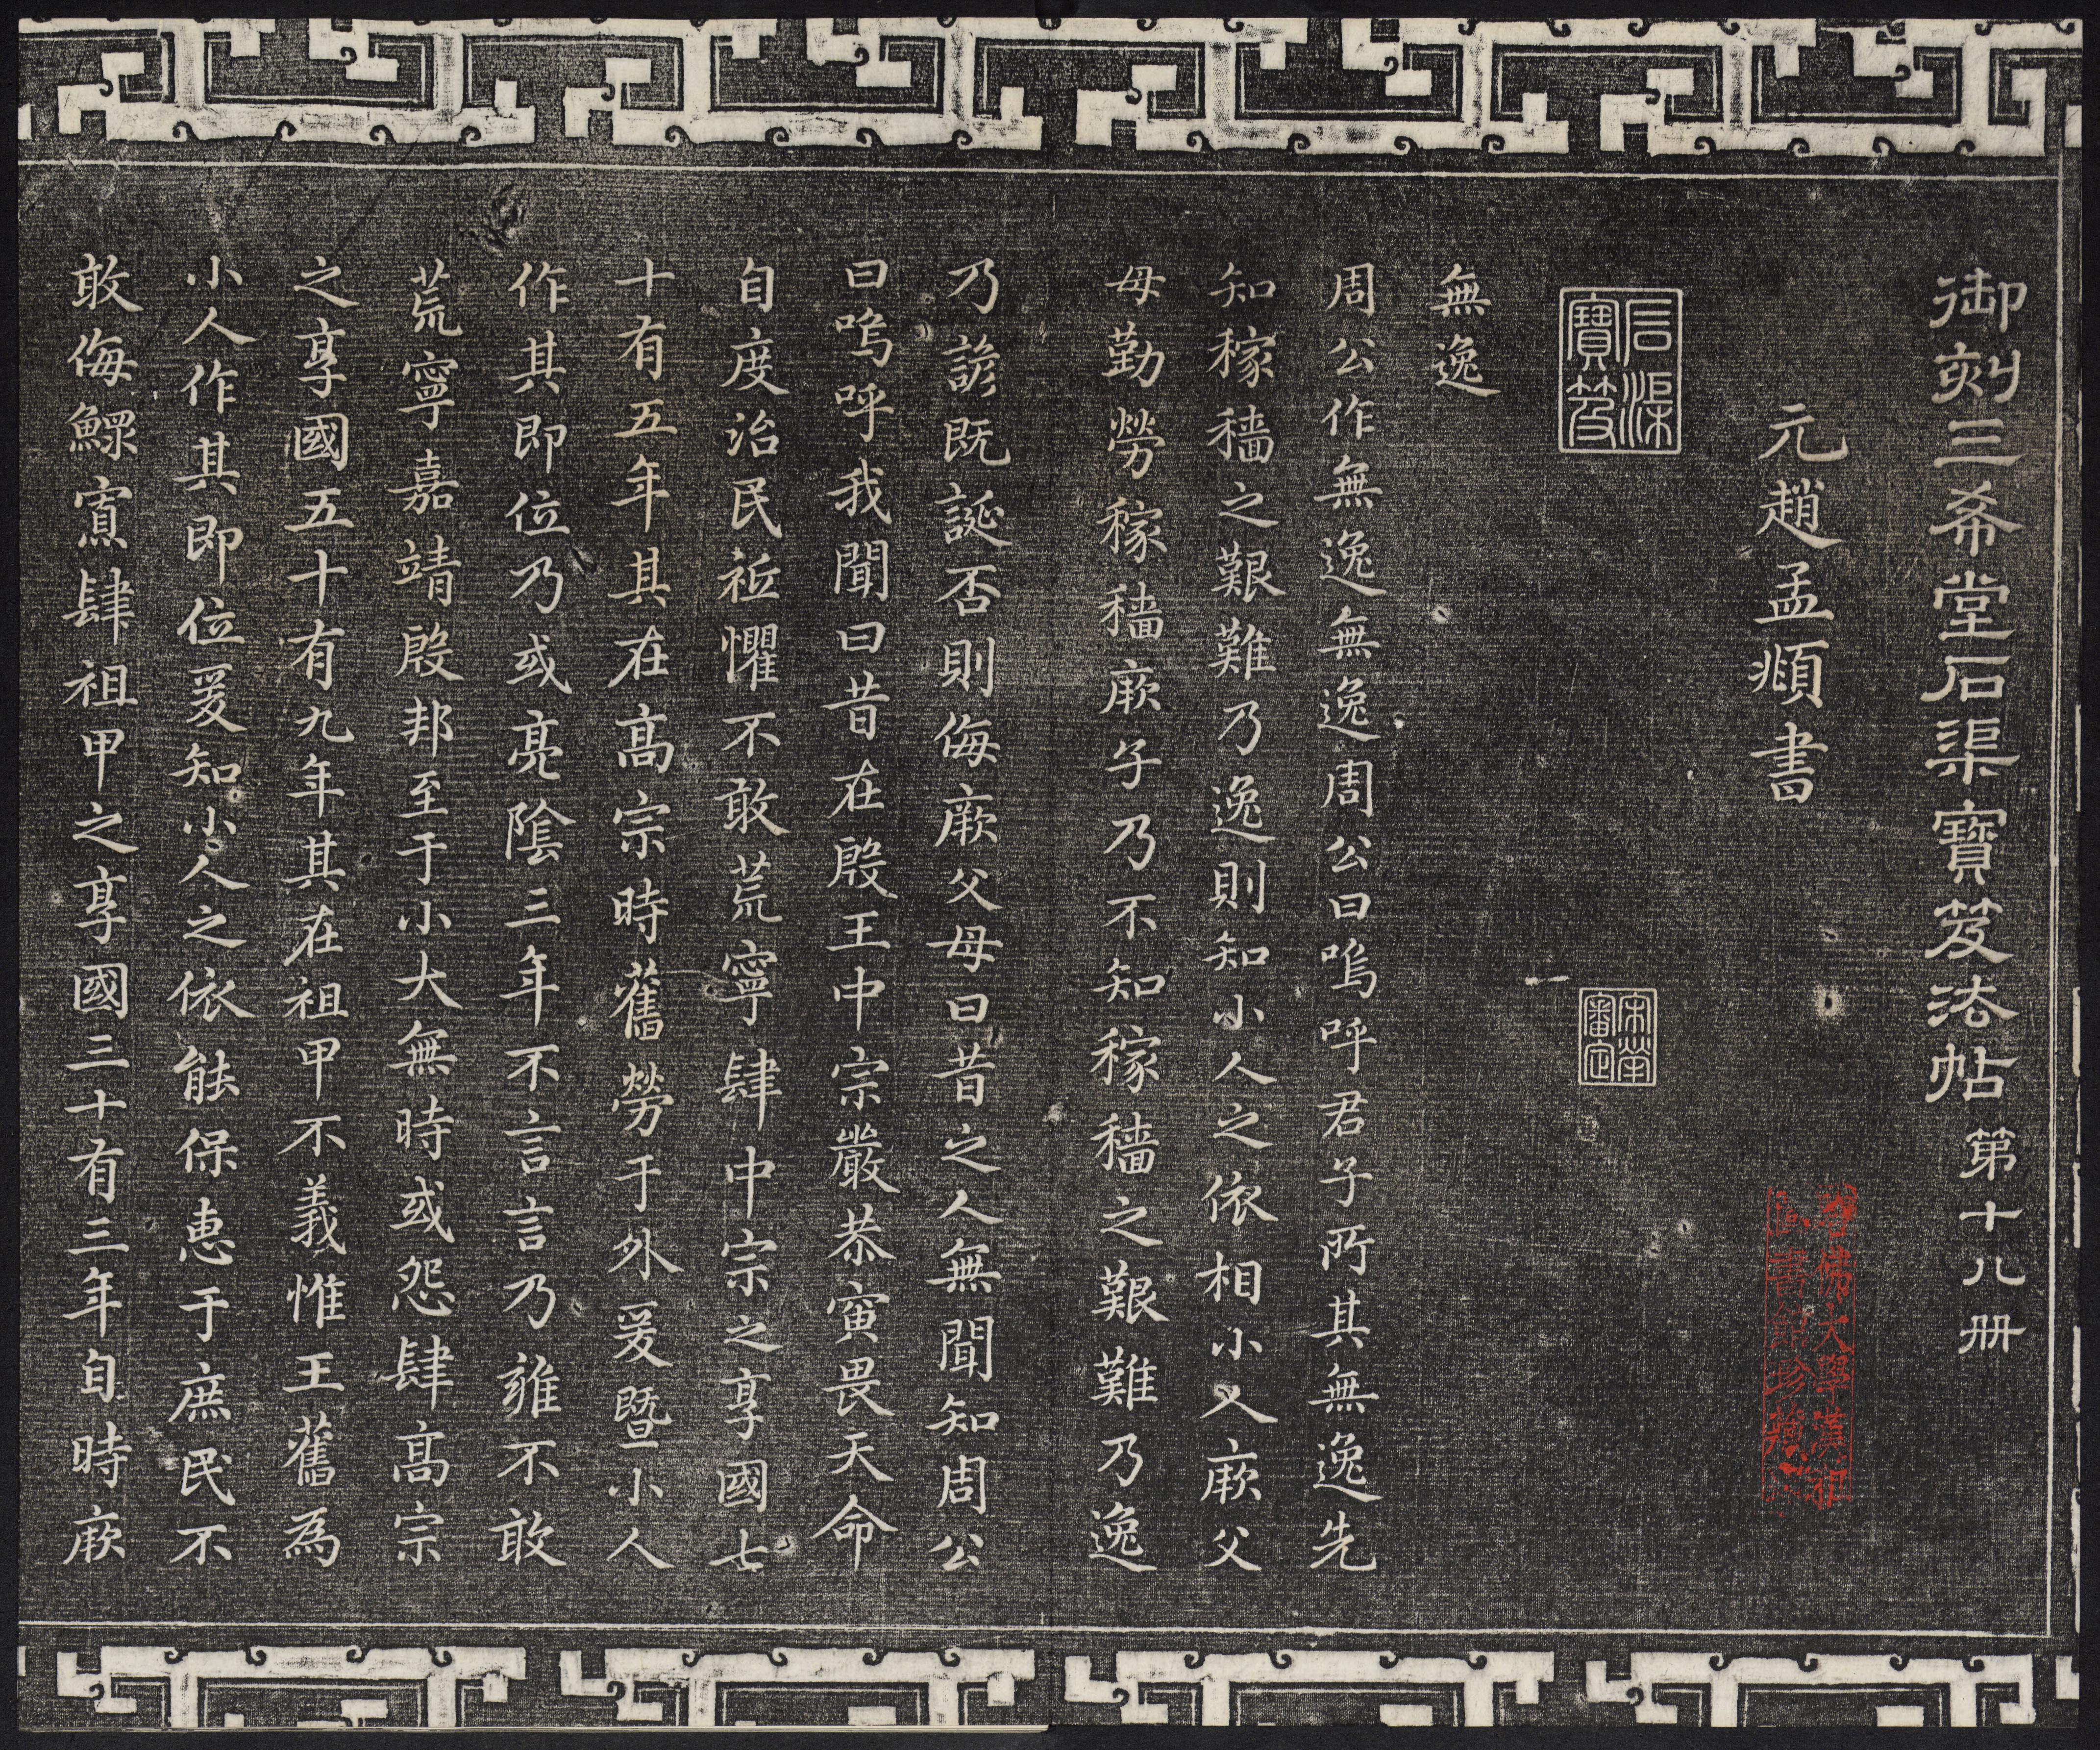 御刻三希堂石渠寶笈法帖第十八冊
元趙孟頫書
石渠寶笈
宋犖審定
哈佛大學漢和圖書館珍藏印
無逸
周公作無逸無逸周公曰嗚呼君子所其無逸先
知稼穡之艱難乃逸則知小人之依相小人厥父
母勤勞稼穡厥子乃不知稼穡之艱難乃逸
乃諺既誕否則侮厥父母曰昔之人無聞知周公
曰嗚呼我聞曰昔在殷王中宗嚴恭寅畏天命
自度治民祗懼不敢荒寧肆中宗之享國七
十有五年其在高宗時舊勞于外爰暨小人
作其即位乃或亮陰三年不言言乃雍不敢
荒寧嘉靖殷邦至于小大無時或怨肆高宗
之享國五十有九年其在祖甲不義惟王舊為
小人作其即位爰知小人之依能保惠于庶民不
敢侮鰥寡肆祖甲之享國三十有三年自時厥